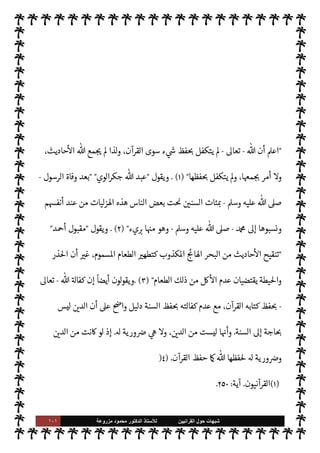 "اعلم أن الله - تعالى - لم يتكفل بحفظ شيء سوى القرآن، ولذا لم يجمع الله الأحاديث،
ولا أمر بجمعها، ولم يتكفل بحفظها" (١) . ويقول "عبد الله جكرالوي" "بعد وفاة الرسول -
صلى الله عليه وسلم - بمئات السنين نحت بعض الناس هذه الهزليات من عند أنفسهم
ونسبوها إلى محمد - صلى الله عليه وسلم - وهو منها بريء" (٢) . ويقول "مقبول أحمد"
"تنقيح الأحاديث من البحر الهائج المكذوب كتطهير الطعام المسموم. غير أن الحذر
والحيطة يقتضيان عدم الأكل من ذلك الطعام" (٣) .ويقولون أيضاً إن كفالة الله - تعالى
- بحفظ كتابه القرآن، مع عدم كفالته بحفظ السنة دليل واضح على أن الدين ليس
بحاجة إلى السنة. وأنها ليست من الدين، ولا هي ضرورية له. إذ لو كانت من الدين
وضرورية له لحفظها الله كما حفظ القرآن. (٤(
(١)القرآنيون. آية: ٢٥٠.
شبهات حول القرانيين للأستاذ الدكتور محمود مزروعة ١٠٢